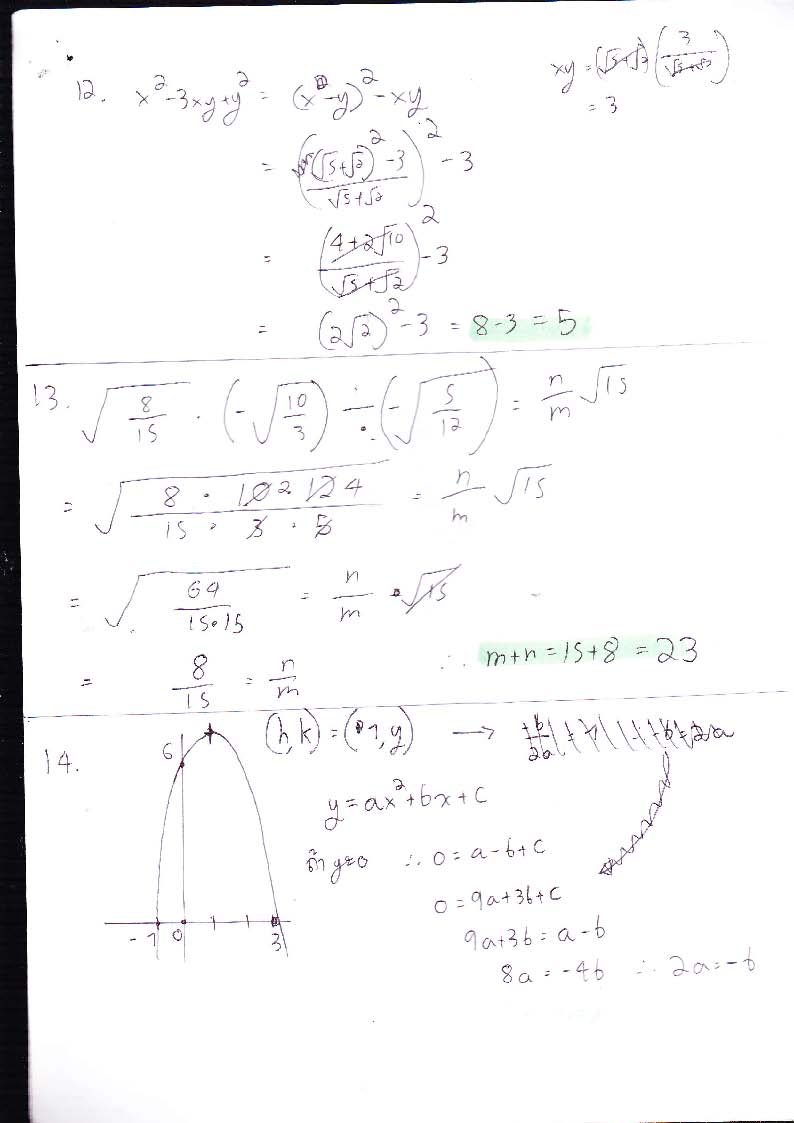 12. x² - 3xy + y² = (x - y)² - xy
xy = (√5+√2) (3/(√5+√2))
= 3
= (((√5+√2)² - 3)/(√5+√2))² - 3
= ((4+2√10)/(√5+√2))² - 3
= (2√2)² - 3 = 8-3 = 5
13. √(8/15) · (-√(10/3)) ÷ (-√(5/12)) = n/m √15
= √((8 · 10 2 12 4)/(15 · 3 · 5)) = n/m √15
= √(64/(15·15)) = n/m · √15
= 8/15 = n/m ∴ m+n = 15+8 = 23
14. (h,k) = (1,y) →
6
y = ax² + bx + c
ถ้า y=0 ∴ 0 = a-b+c
0 = 9a+3b+c
-1 0 3
9a+3b = a-b
8a = -4b ∴ 2a = -b